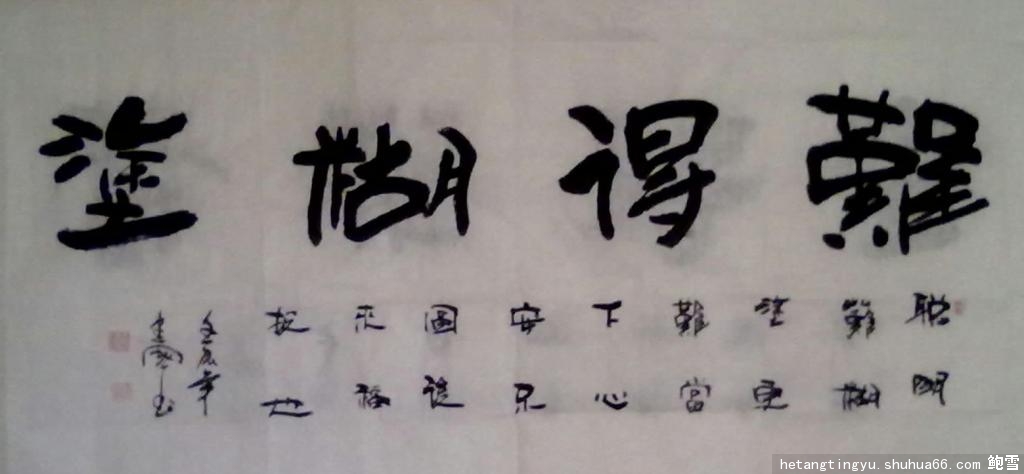 難得糊塗
聪明
難糊
塗更
難當
下心
安不
圖後
来福
报也
壬辰年
hetangtingyu.shuhua66.com 鲍雪